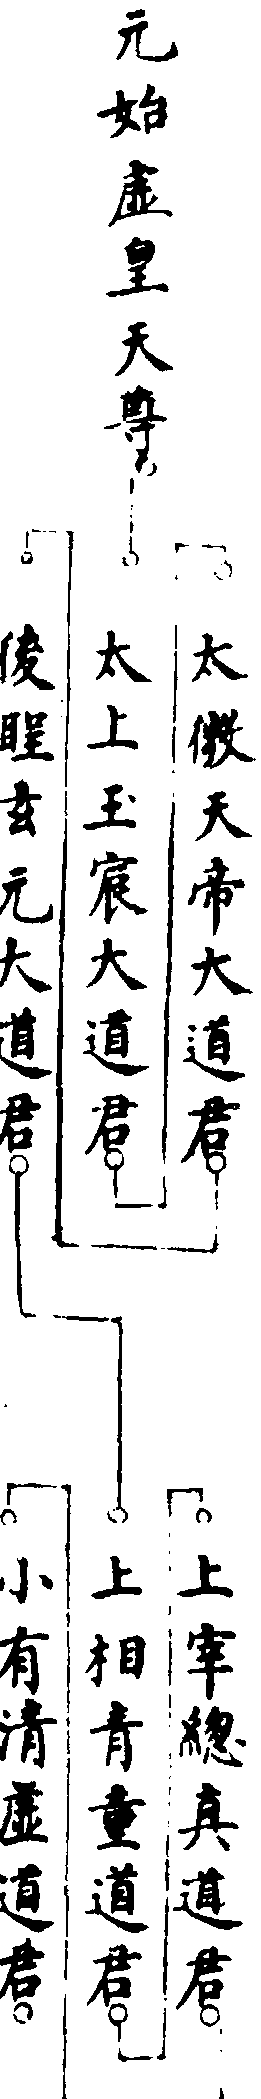 元始虛皇天尊
太微天帝大道君
太上玉宸大道君
後聖玄元大道君
上宰總真道君
上相青童道君
小有清虛道君